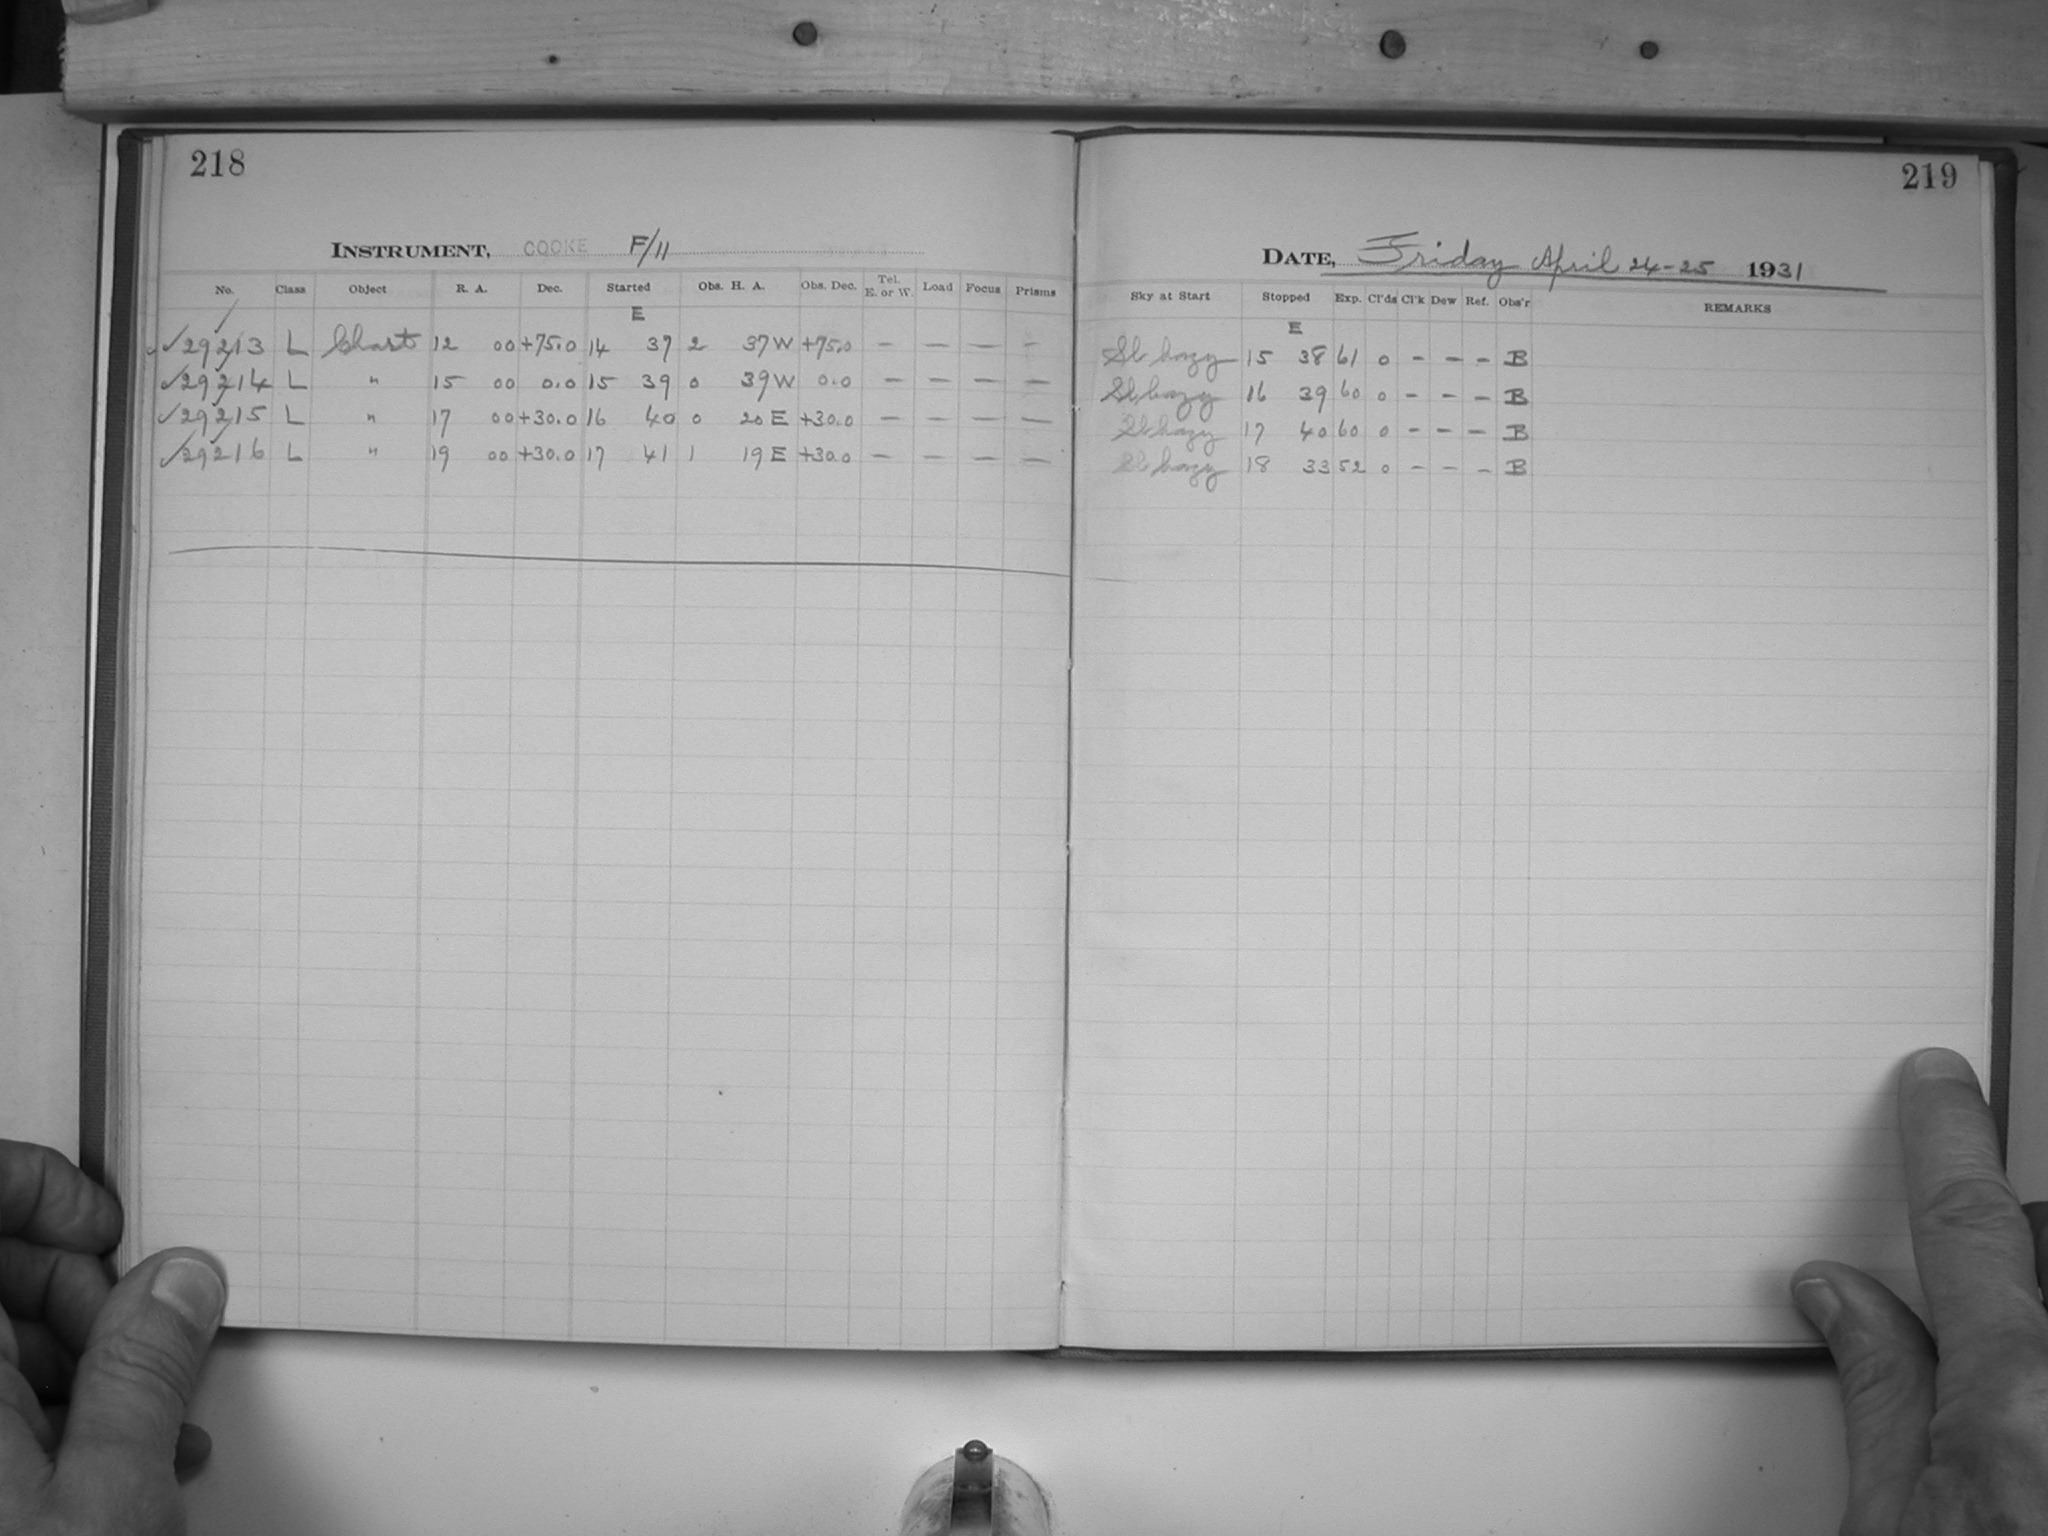 218
INSTRUMENT, COOKE F/11
No. Class Object R. A. Dec. Started Obs. H. A. Obs. Dec. Tel. E. or W. Load Focus Prisms
E
✓29213 L Chart 12 00 +75.0 14 37 2 37 W +75.0 - - - -
✓29214 L " 15 00 0.0 15 39 0 39 W 0.0 - - - -
✓29215 L " 17 00 +30.0 16 40 0 20 E +30.0 - - - -
✓29216 L " 19 00 +30.0 17 41 1 19 E +30.0 - - - -
219
DATE, Friday April 24-25 1931
Sky at Start Stopped Exp. Cl'ds Cl'k Dew Ref. Obs'r REMARKS
E
Sl hazy 15 38 61 0 - - - B
Sl hazy 16 39 60 0 - - - B
Sl hazy 17 40 60 0 - - - B
Sl hazy 18 33 52 0 - - - B